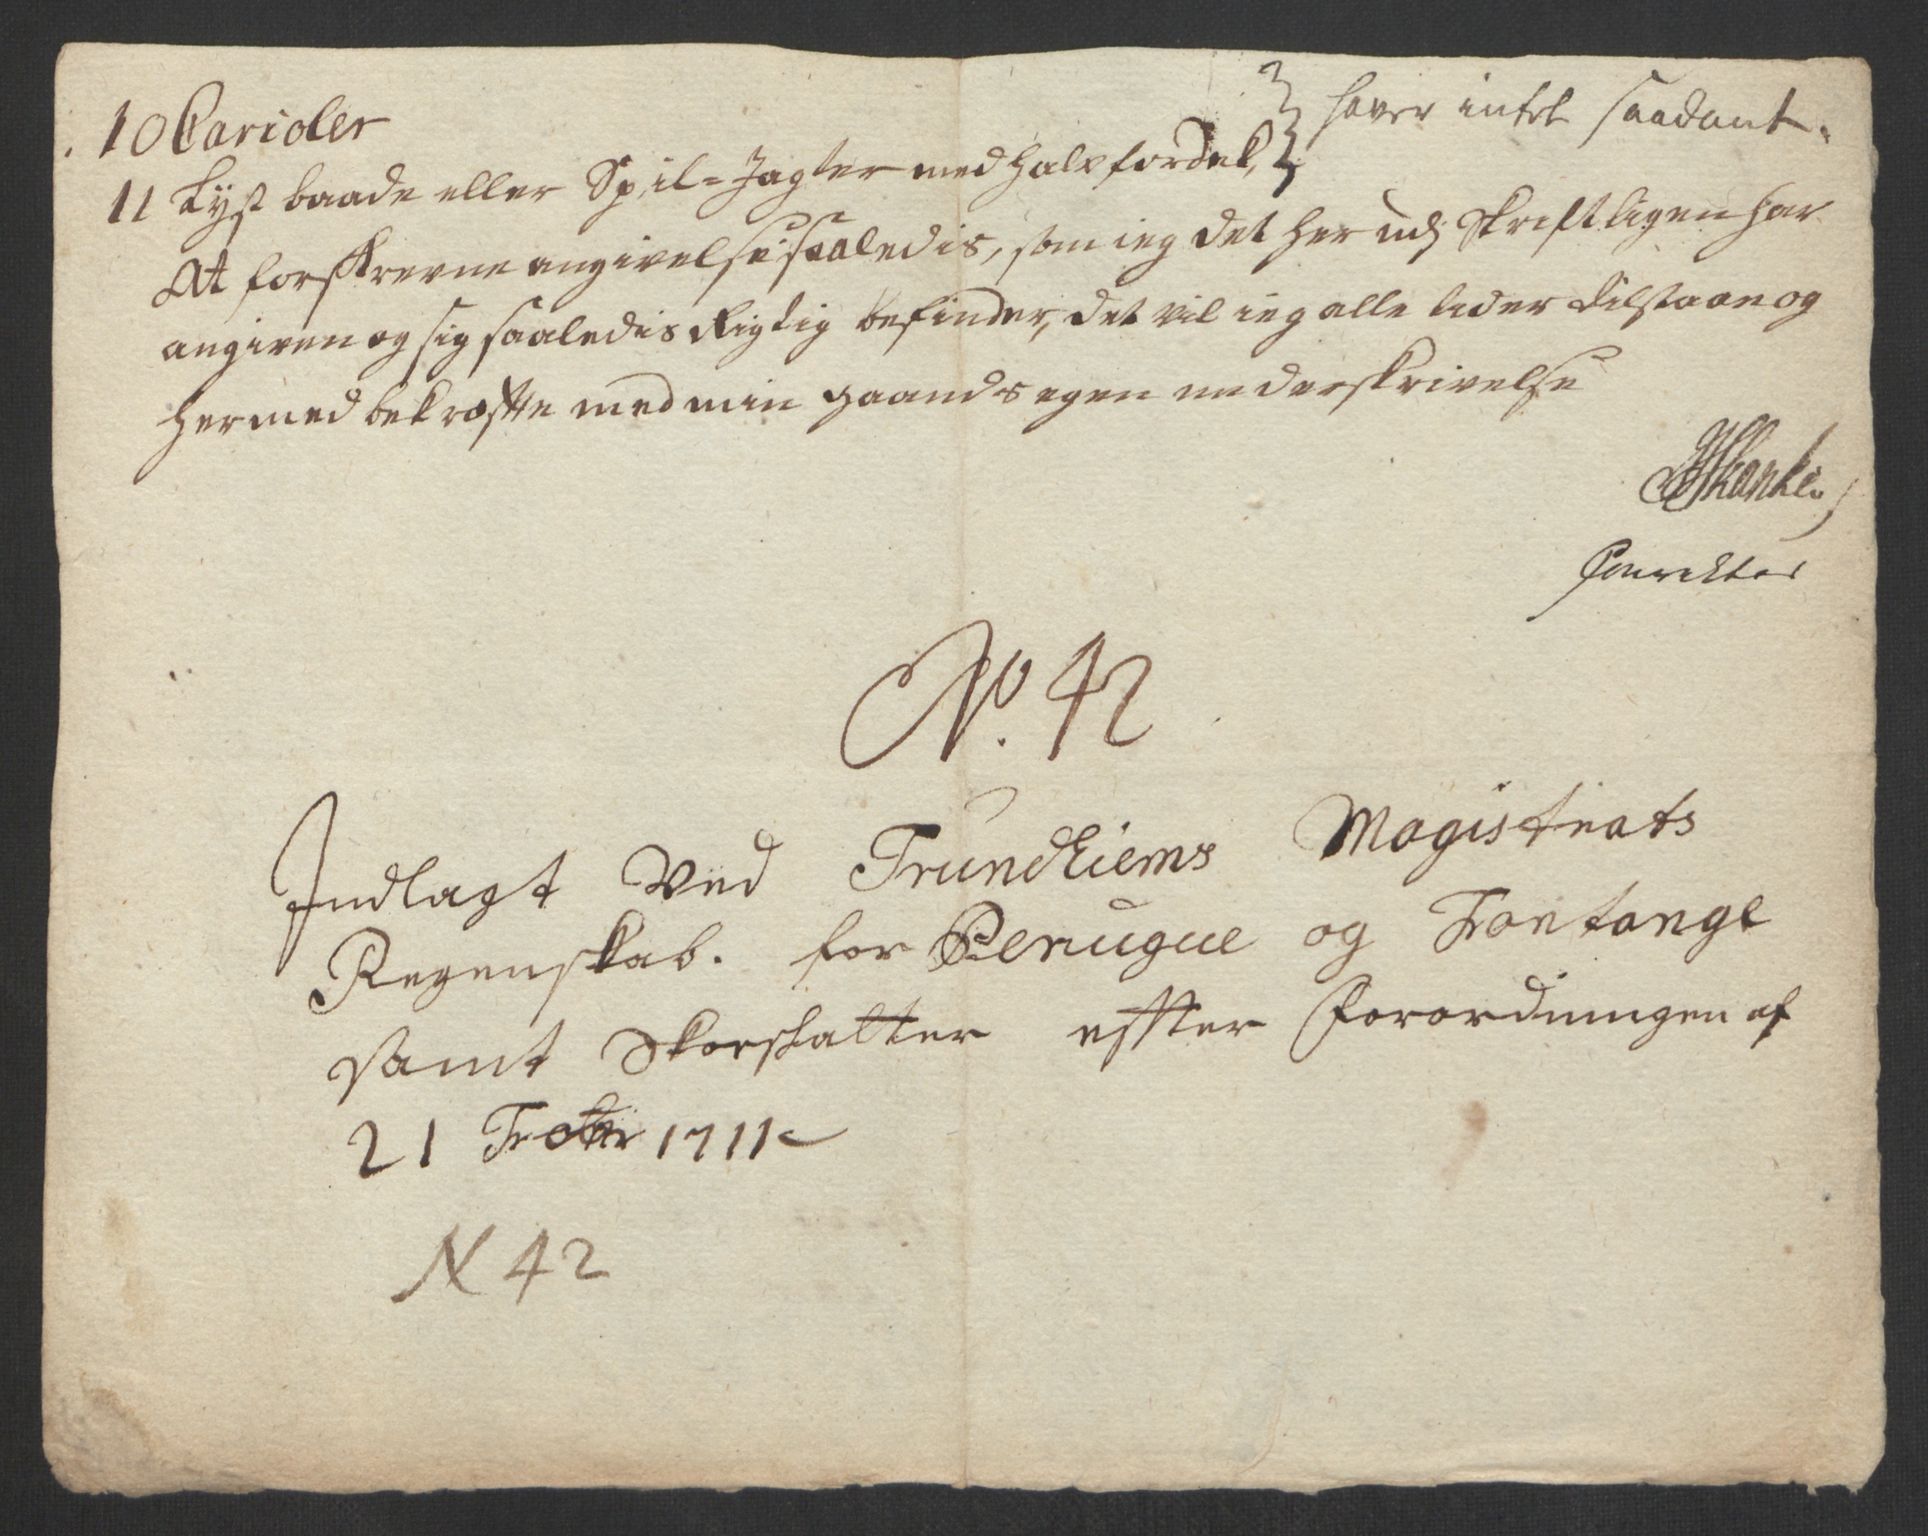 10 Carioler
11 Lyst baade eller Spil-Jagter med halv fordek, } haver intet saadant.
At forskrevne angivelse saaledis, som ieg det her udj Skriftligen har
angiven og sig saaledis Rigtig befinder, det vil ieg alle tider tilstaae og
hermed bekræfte med min Haands egen underskrivelse
Skanke
Conrektor
No. 42
Indlagt Ved Trundhiems Magistrats
Regenskab. for Peruque og Fontange
samt Skorskatter effter Forordningen af
21 1711
N 42